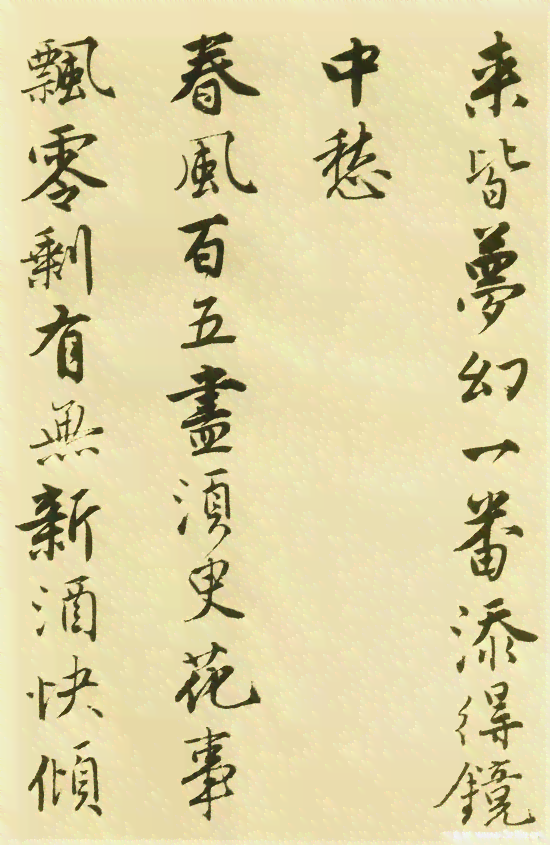 來皆夢幻一番添得鏡
中愁
春風百五盡須臾花事
飄零剩有無新酒快傾